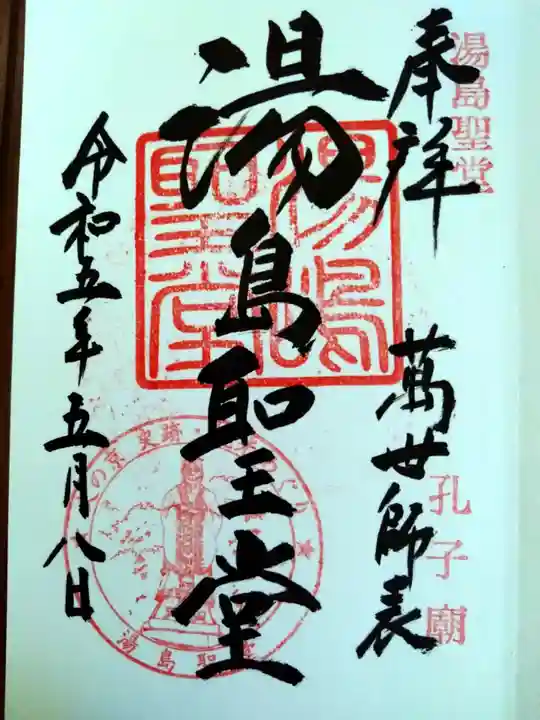 湯島聖堂
奉拝
萬世師表
孔子廟
湯島聖堂
湯嶋聖堂
令和五年五月八日
史跡
湯島聖堂